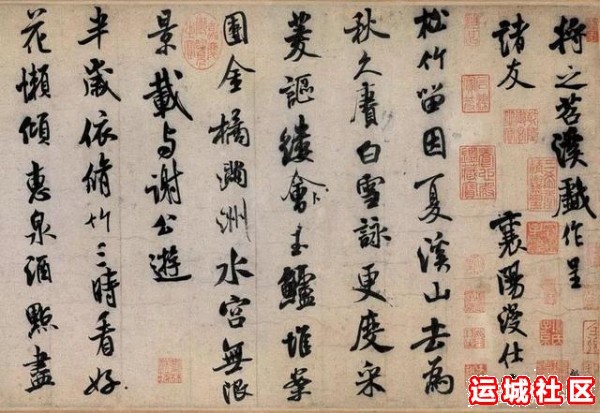 將之苕溪戲作呈
諸友
襄陽漫仕
松竹留因夏溪山去為
秋久賡白雪詠更度采
菱謳縷會玉鱸堆案
團金橘滿洲水宮無限
景載与謝公遊
半歲依脩竹三時看好
花懶傾惠泉酒點盡
运城社区